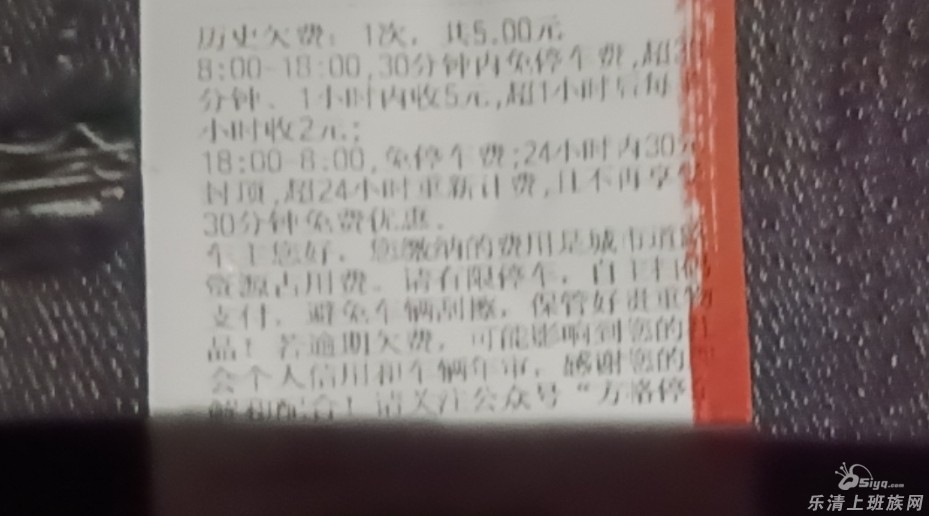 历史欠费：1次，共5.00元
8:00-18:00,30分钟内免停车费,超30
分钟、1小时内收5元,超1小时后每
小时收2元;
18:00-8:00,免停车费;24小时内30元
封顶,超24小时重新计费,且不再享受
30分钟免费优惠.
车主您好，您缴纳的费用是城市道路
资源占用费。请有限停车，自主扫码
支付，避免车辆刮擦，保管好贵重物
品！若逾期欠费，可能影响到您的社
会个人信用和车辆年审，感谢您的理
解和配合！请关注公众号“方洛停
Siyq.com
乐清上班族网